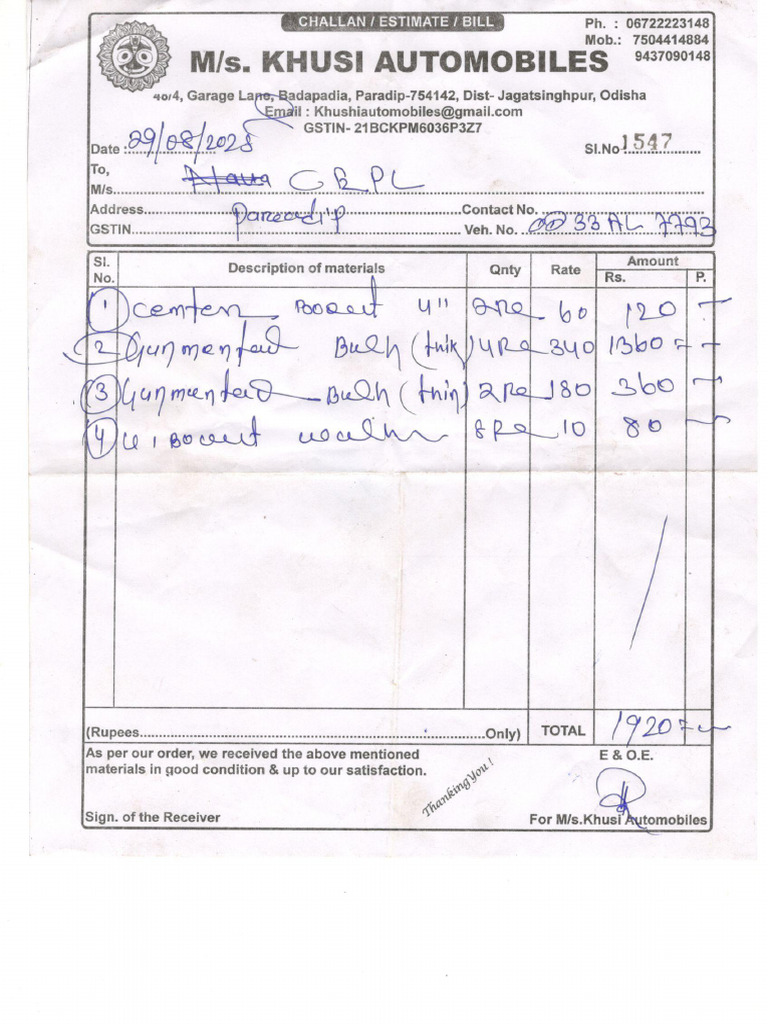 CHALLAN / ESTIMATE / BILL
Ph. : 06722223148
Mob.: 7504414884
9437090148
M/s. KHUSI AUTOMOBILES
40/4, Garage Lane, Badapadia, Paradip-754142, Dist- Jagatsinghpur, Odisha
Email : Khushiautomobiles@gmail.com
GSTIN- 21BCKPM6036P3Z7
Date : 29/08/2025 Sl.No 1547
To,
M/s. GRPL
Address Contact No.
GSTIN Veh. No. OD 33 AL 7793
Sl. No. Description of materials Qnty Rate Amount Rs. P.
1 4" 60 120
2 Bush 340 1360
3 Bush (thin) 180 360
4 10 80
(Rupees Only) TOTAL 1920
As per our order, we received the above mentioned E & O.E.
materials in good condition & up to our satisfaction.
Thanking You !
Sign. of the Receiver For M/s.Khusi Automobiles